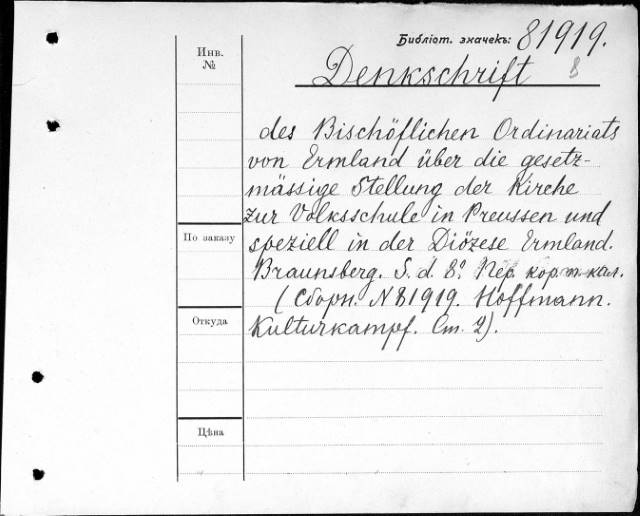 Библіот. значекъ: 81919.
8
Инв.
№
Denkschrift
des Bischöflichen Ordinariats
von Ermland über die gesetz-
mässige Stellung der Kirche
zur Volksschule in Preussen und
speziell in der Diözese Ermland.
Braunsberg. S. d. 8º. Пер. кор. т. кол.
(Сборн. N 81919. Hoffmann.
Kulturkampf. Ст. 2).
По заказу
Откуда
Цѣна